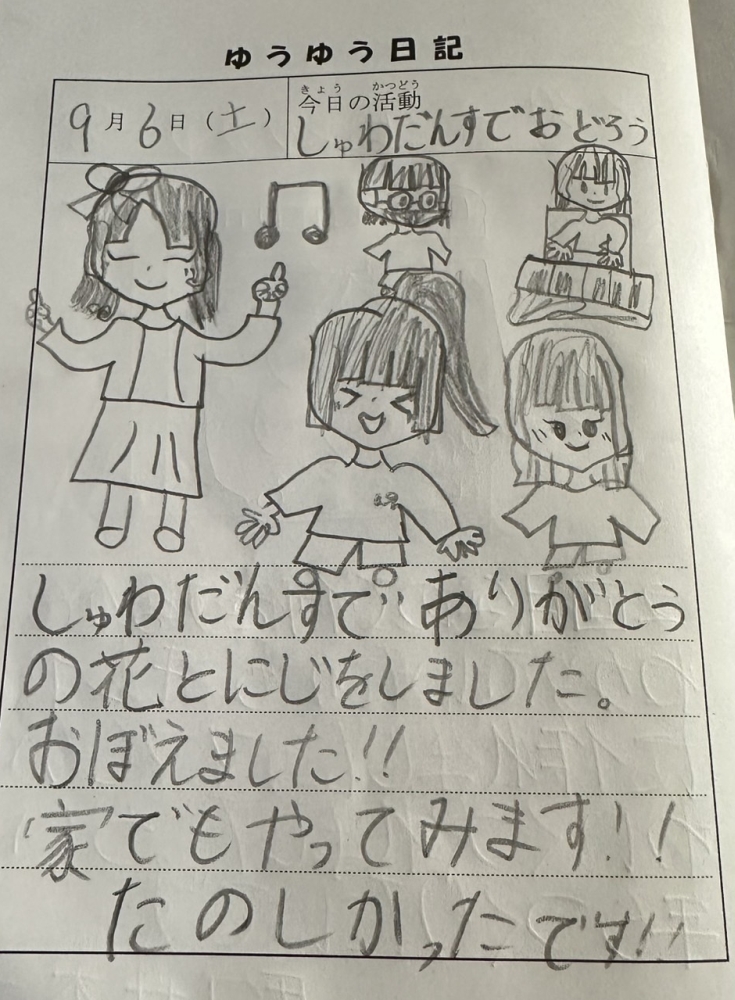 ゆうゆう日記
9月6日(土)
きょう かつどう
今日の活動
しゅわだんすでおどろう
しゅわだんすで ありがとう
の花とにじをしました。
おぼえました!!
家でもやってみます!!
たのしかったです!!